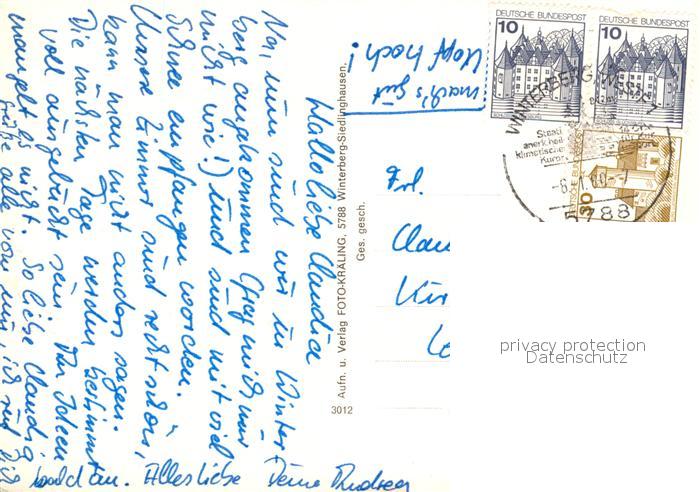 Hallo liebe Claudia
Na, nun sind wir in Winter-
berg angekommen (frag mich nur
nicht wie!) und sind mit viel
Schnee empfangen worden.
Unsere Zimmer sind recht schön,
kann man nicht anders sagen.
Die nächsten Tage werden bestimmt
voll ausgebucht sein. An Ideen
mangelt es nicht. So liebe Claudia
Grüße alle von mir, ich ruf Dich
bald an. Alles liebe Deine Andrea
mach's gut
Kopf hoch!
Aufn. u. Verlag FOTO-KRÄLING, 5788 Winterberg-Siedlinghausen,
Ges. gesch.
3012
DEUTSCHE BUNDESPOST
10
DEUTSCHE BUNDESPOST
10
WINTERBERG, WESTF
Staatl
anerk heil
klimatische
Kuror
30
5788
Frl.
Clau
privacy protection
Datenschutz